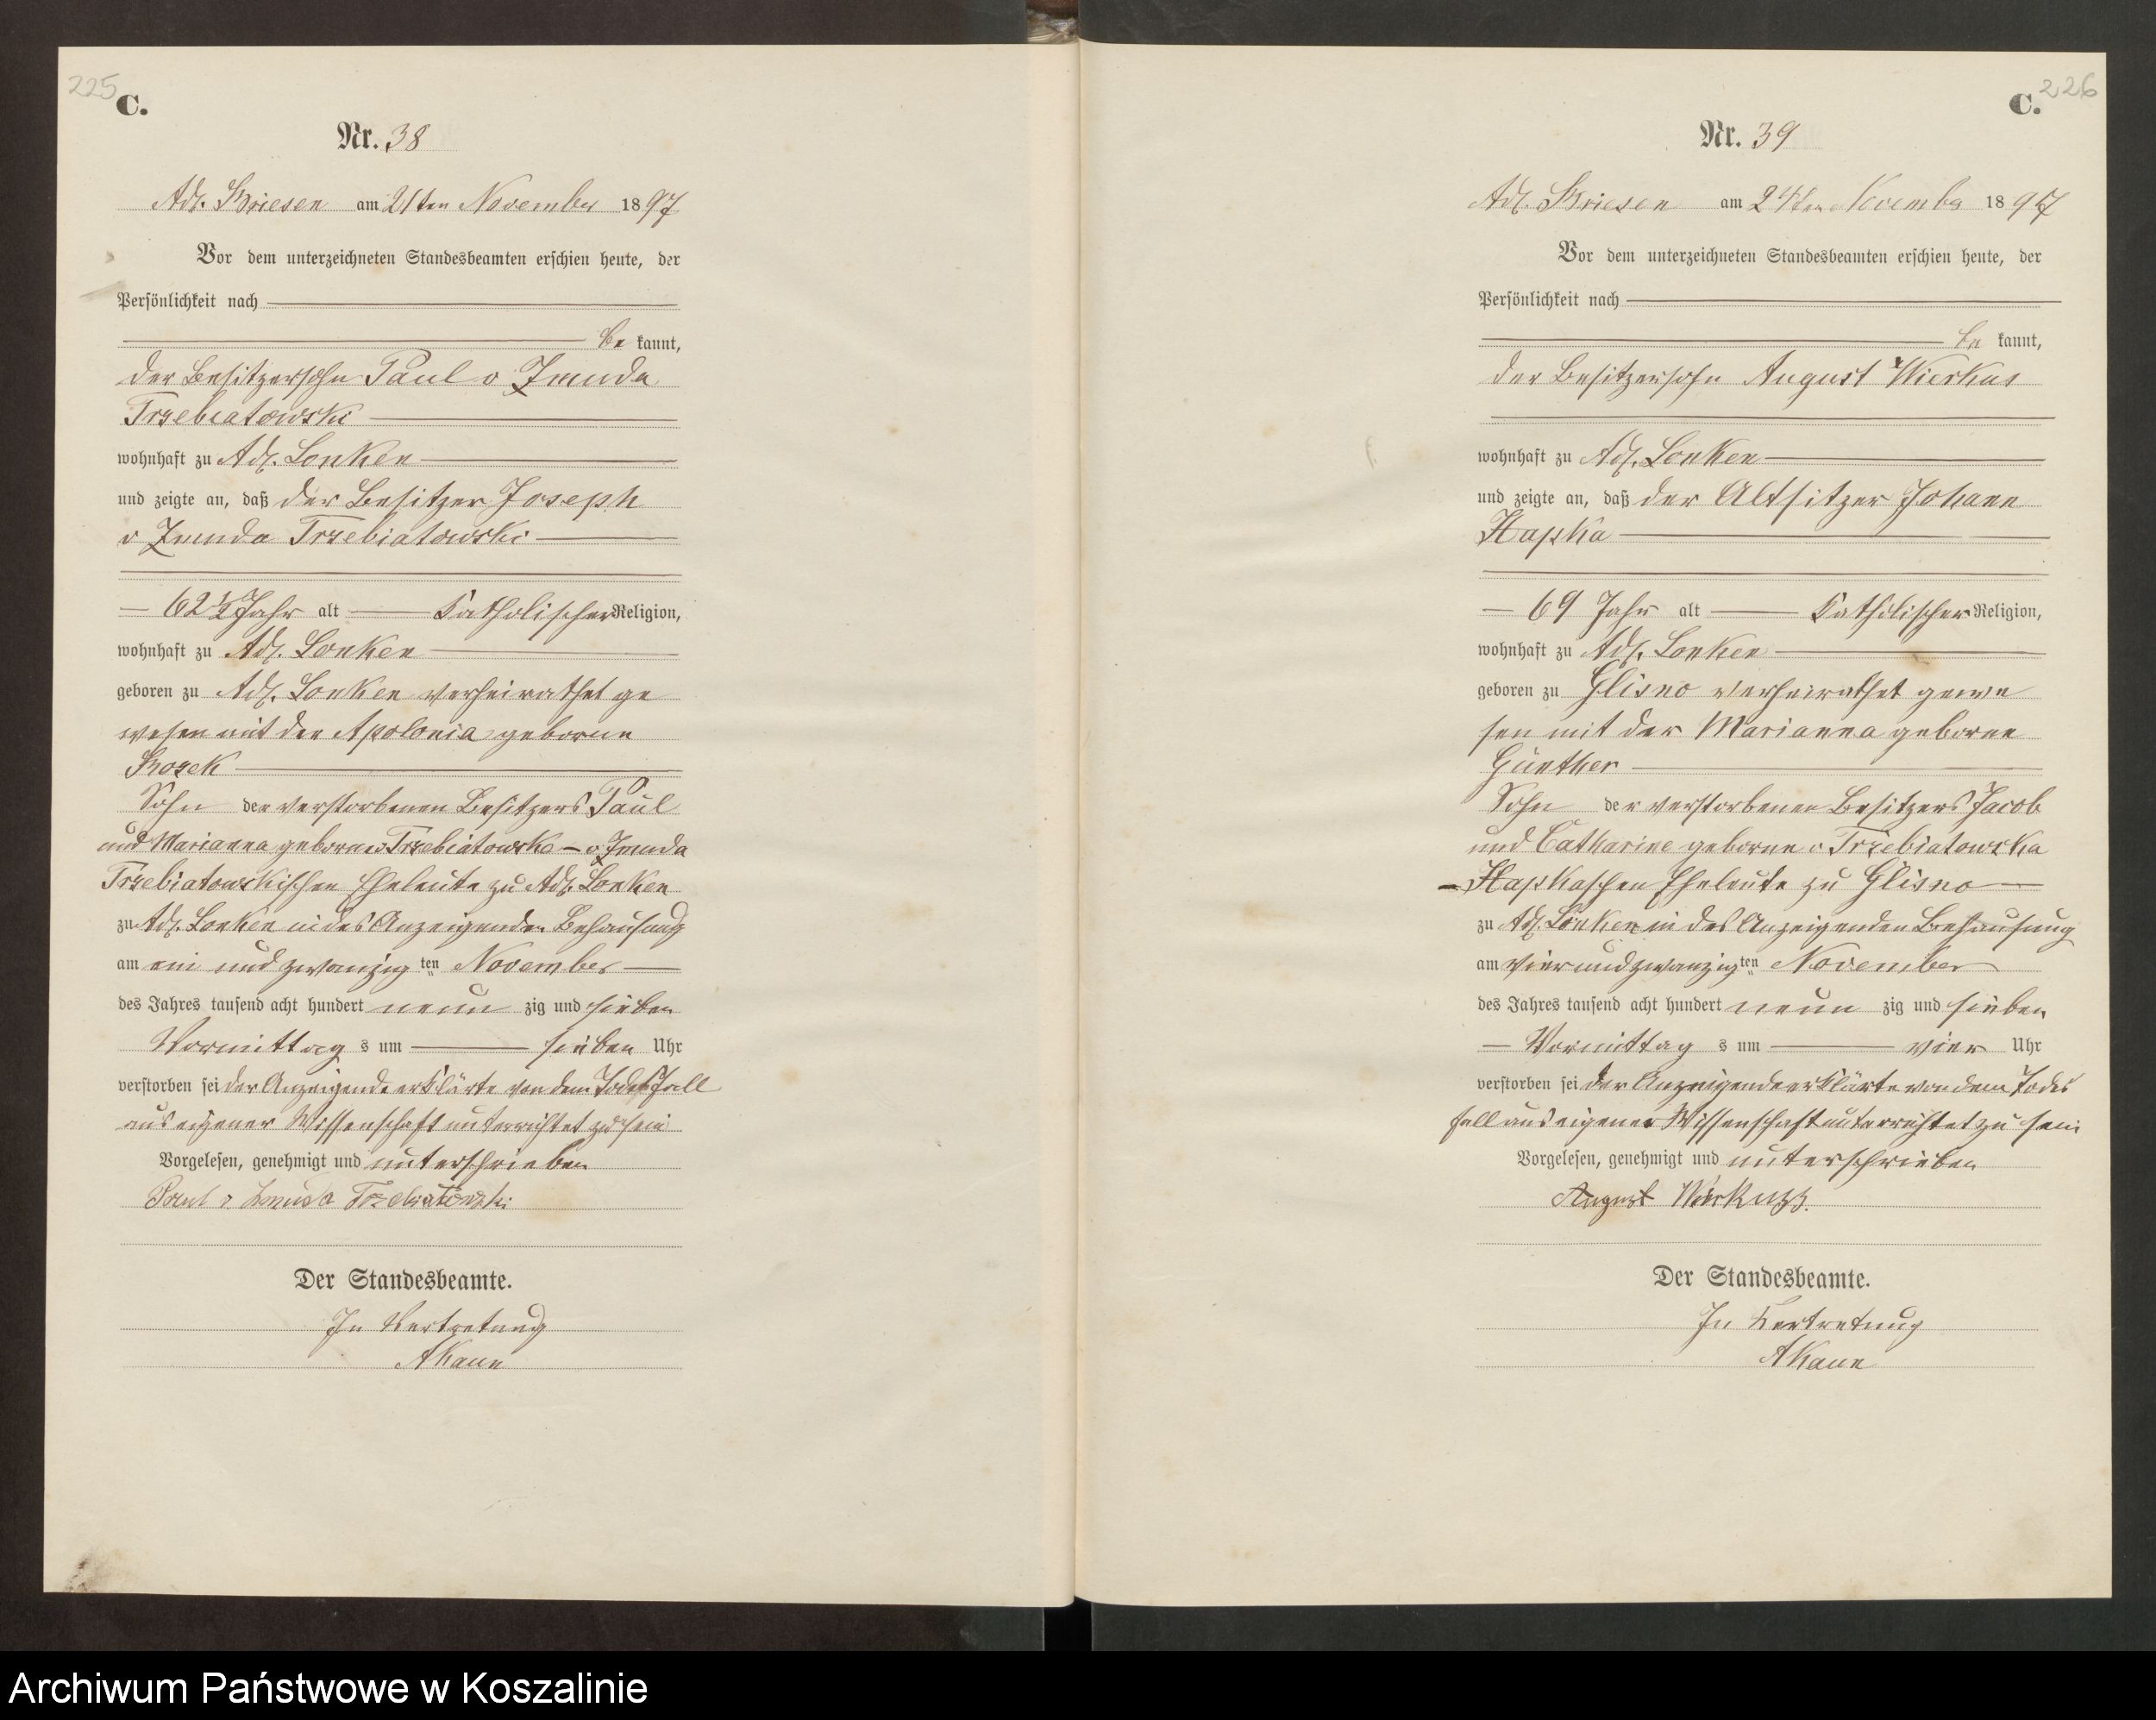 225
C.
Nr. 38
Adl. Briesen am 21ten November 1897
Vor dem unterzeichneten Standesbeamten erschien heute, der
Persönlichkeit nach
be kannt,
der Besitzersohn Paul v Zmuda
Trzebiatowski
wohnhaft zu Adl. Lonken
und zeigte an, daß der Besitzer Joseph
v Zmuda Trzebiatowski
62 1/2 Jahr alt Katholischer Religion,
wohnhaft zu Adl. Lonken
geboren zu Adl. Lonken verheirathet ge
wesen mit der Apolonia geborne
Sohn der verstorbenen Besitzers Paul
und Marianna geborne v Trzebiatowska – v Zmuda
Trzebiatowskischen Eheleute zu Adl. Lonken
zu Adl. Lonken in des Anzeigenden Behausung
am ein und zwanzig ten November
des Jahres tausend acht hundert neun zig und sieben
Vormittag s um sieben Uhr
verstorben sei der Anzeigende erklärte von dem Todesfall
aus eigener Wissenschaft unterrichtet zu sein
Vorgelesen, genehmigt und unterschrieben
Paul v Zmuda Trzebiatowski
Der Standesbeamte.
In Vertretung
AKann
226
C.
Nr. 39
Adl. Briesen am 24ten November 1897
Vor dem unterzeichneten Standesbeamten erschien heute, der
Persönlichkeit nach
be kannt,
der Besitzersohn August Wierkus
wohnhaft zu Adl. Lonken
und zeigte an, daß der Altsitzer Johann
Hapka
69 Jahr alt Katholischer Religion,
wohnhaft zu Adl. Lonken
geboren zu Glisno verheirathet gewe
sen mit der Marianna geborne
Günther
Sohn der verstorbenen Besitzers Jacob
und Catharine geborne v Trzebiatowska
– Hapkaschen Eheleute zu Glisno
zu Adl. Lonken in des Anzeigenden Behausung
am vier und zwanzig ten November
des Jahres tausend acht hundert neun zig und sieben
Vormittag s um vier Uhr
verstorben sei der Anzeigende erklärte von dem Todes
fall aus eigener Wissenschaft unterrichtet zu sein
Vorgelesen, genehmigt und unterschrieben
August
Der Standesbeamte.
In Vertretung
AKann
Archiwum Państwowe w Koszalinie